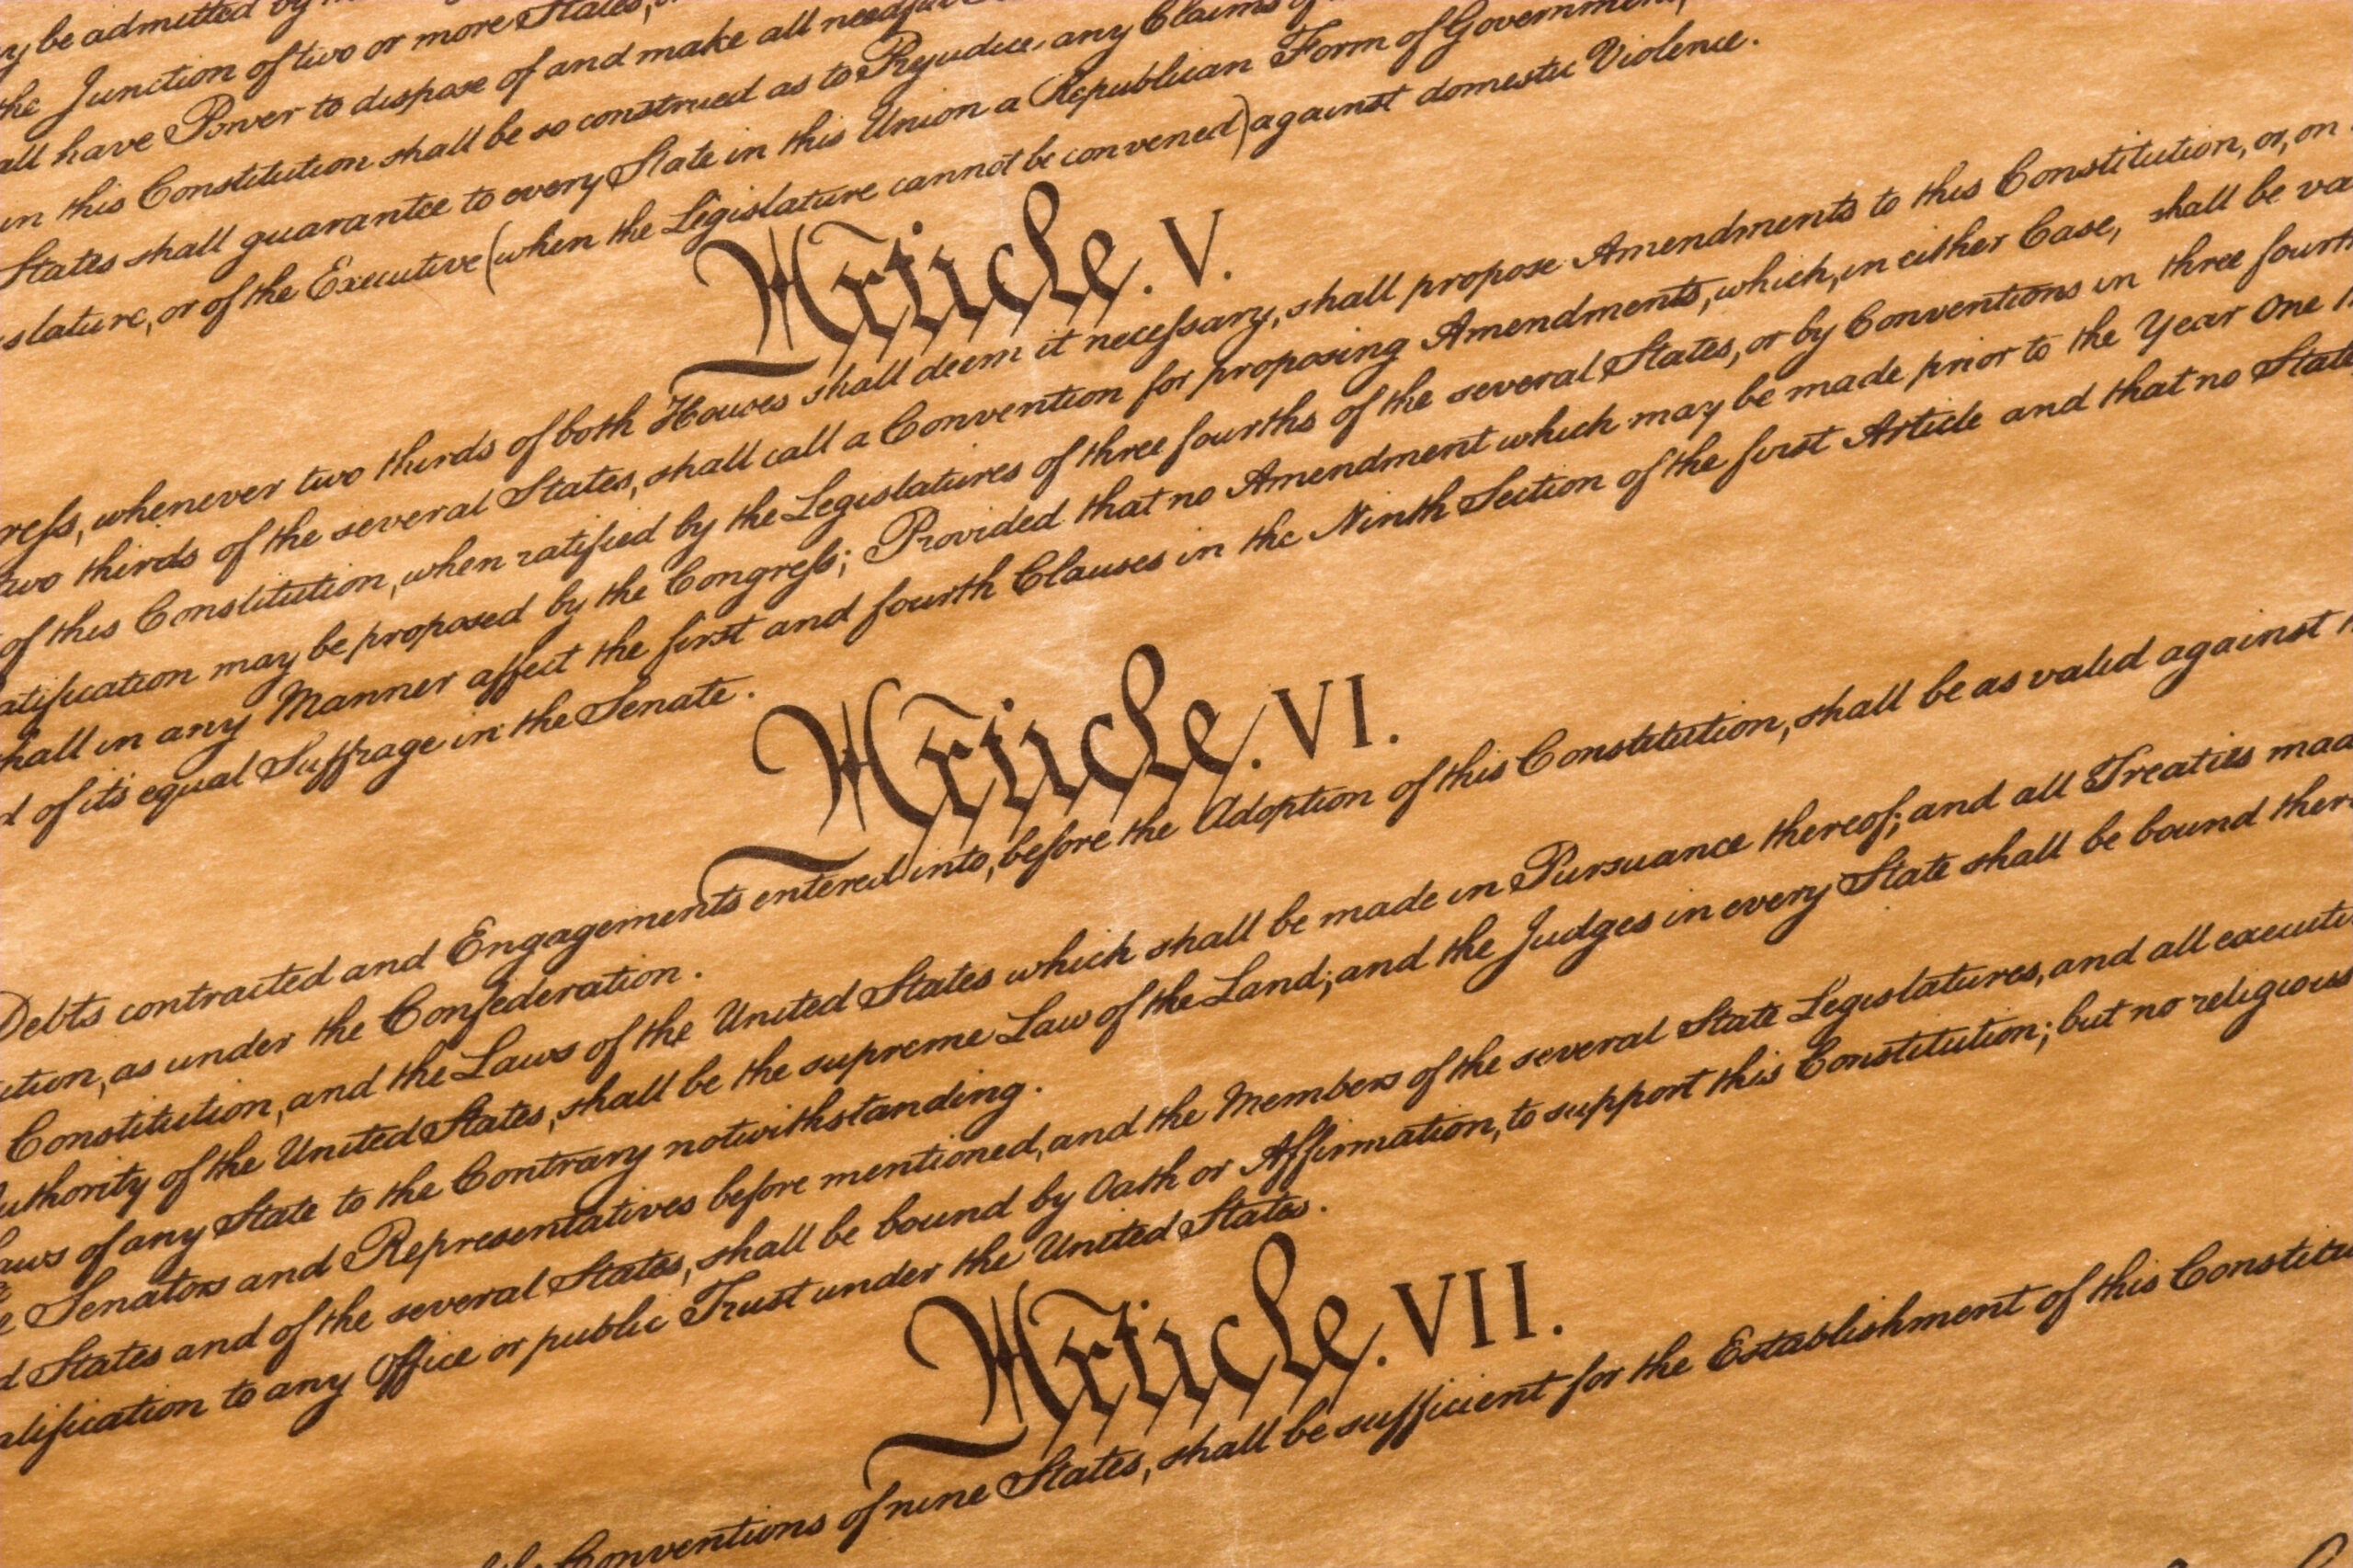 be admitted by
the Junction of two or more States,
all have Power to dispose of and make all needful
in this Constitution shall be so construed as to Prejudice any Claims of
States shall guarantee to every State in this Union a Republican Form of Government,
slature, or of the Executive (when the Legislature cannot be convened) against domestic Violence.
Article. V.
reſs, whenever two thirds of both Houses shall deem it neceſsary, shall propose Amendments to this Constitution, or, on
two thirds of the several States, shall call a Convention for proposing Amendments, which, in either Case, shall be va
of this Constitution, when ratified by the Legislatures of three fourths of the several States, or by Conventions in three fourth
atification may be proposed by the Congreſs; Provided that no Amendment which may be made prior to the Year One
hall in any Manner affect the first and fourth Clauses in the Ninth Section of the first Article and that no State
d of its equal Suffrage in the Senate.
Article. VI.
Debts contracted and Engagements entered into, before the Adoption of this Constitution, shall be as valid against
ution, as under the Confederation.
Constitution, and the Laws of the United States which shall be made in Pursuance thereof; and all Treaties mad
uthority of the United States, shall be the supreme Law of the Land; and the Judges in every State shall be bound there
aws of any State to the Contrary notwithstanding.
e Senators and Representatives before mentioned, and the Members of the several State Legislatures, and all executi
d States and of the several States, shall be bound by Oath or Affirmation, to support this Constitution; but no religious
alification to any Office or public Trust under the United States.
Article. VII.
Conventions of nine States, shall be sufficient for the Establishment of this Constitu